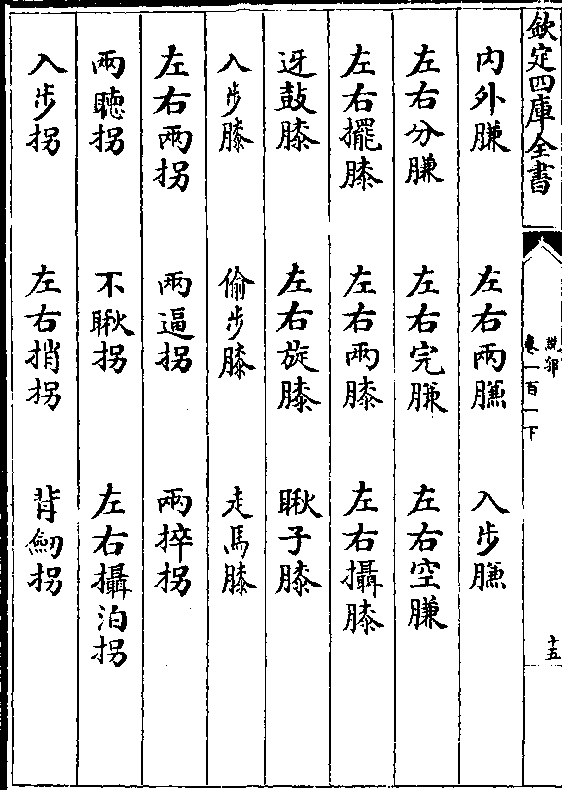 欽定四庫全書
說郛
卷一百一下
十五
內外膁 左右兩膁 入步膁
左右分膁 左右完膁 左右空膁
左右擺膝 左右兩膝 左右攝膝
迓鼓膝 左右旋膝 瞅子膝
入步膝 偷步膝 走馬膝
左右兩拐 兩逼拐 兩捽拐
兩聴拐 不瞅拐 左右攝泊拐
入步拐 左右捎拐 背劒拐